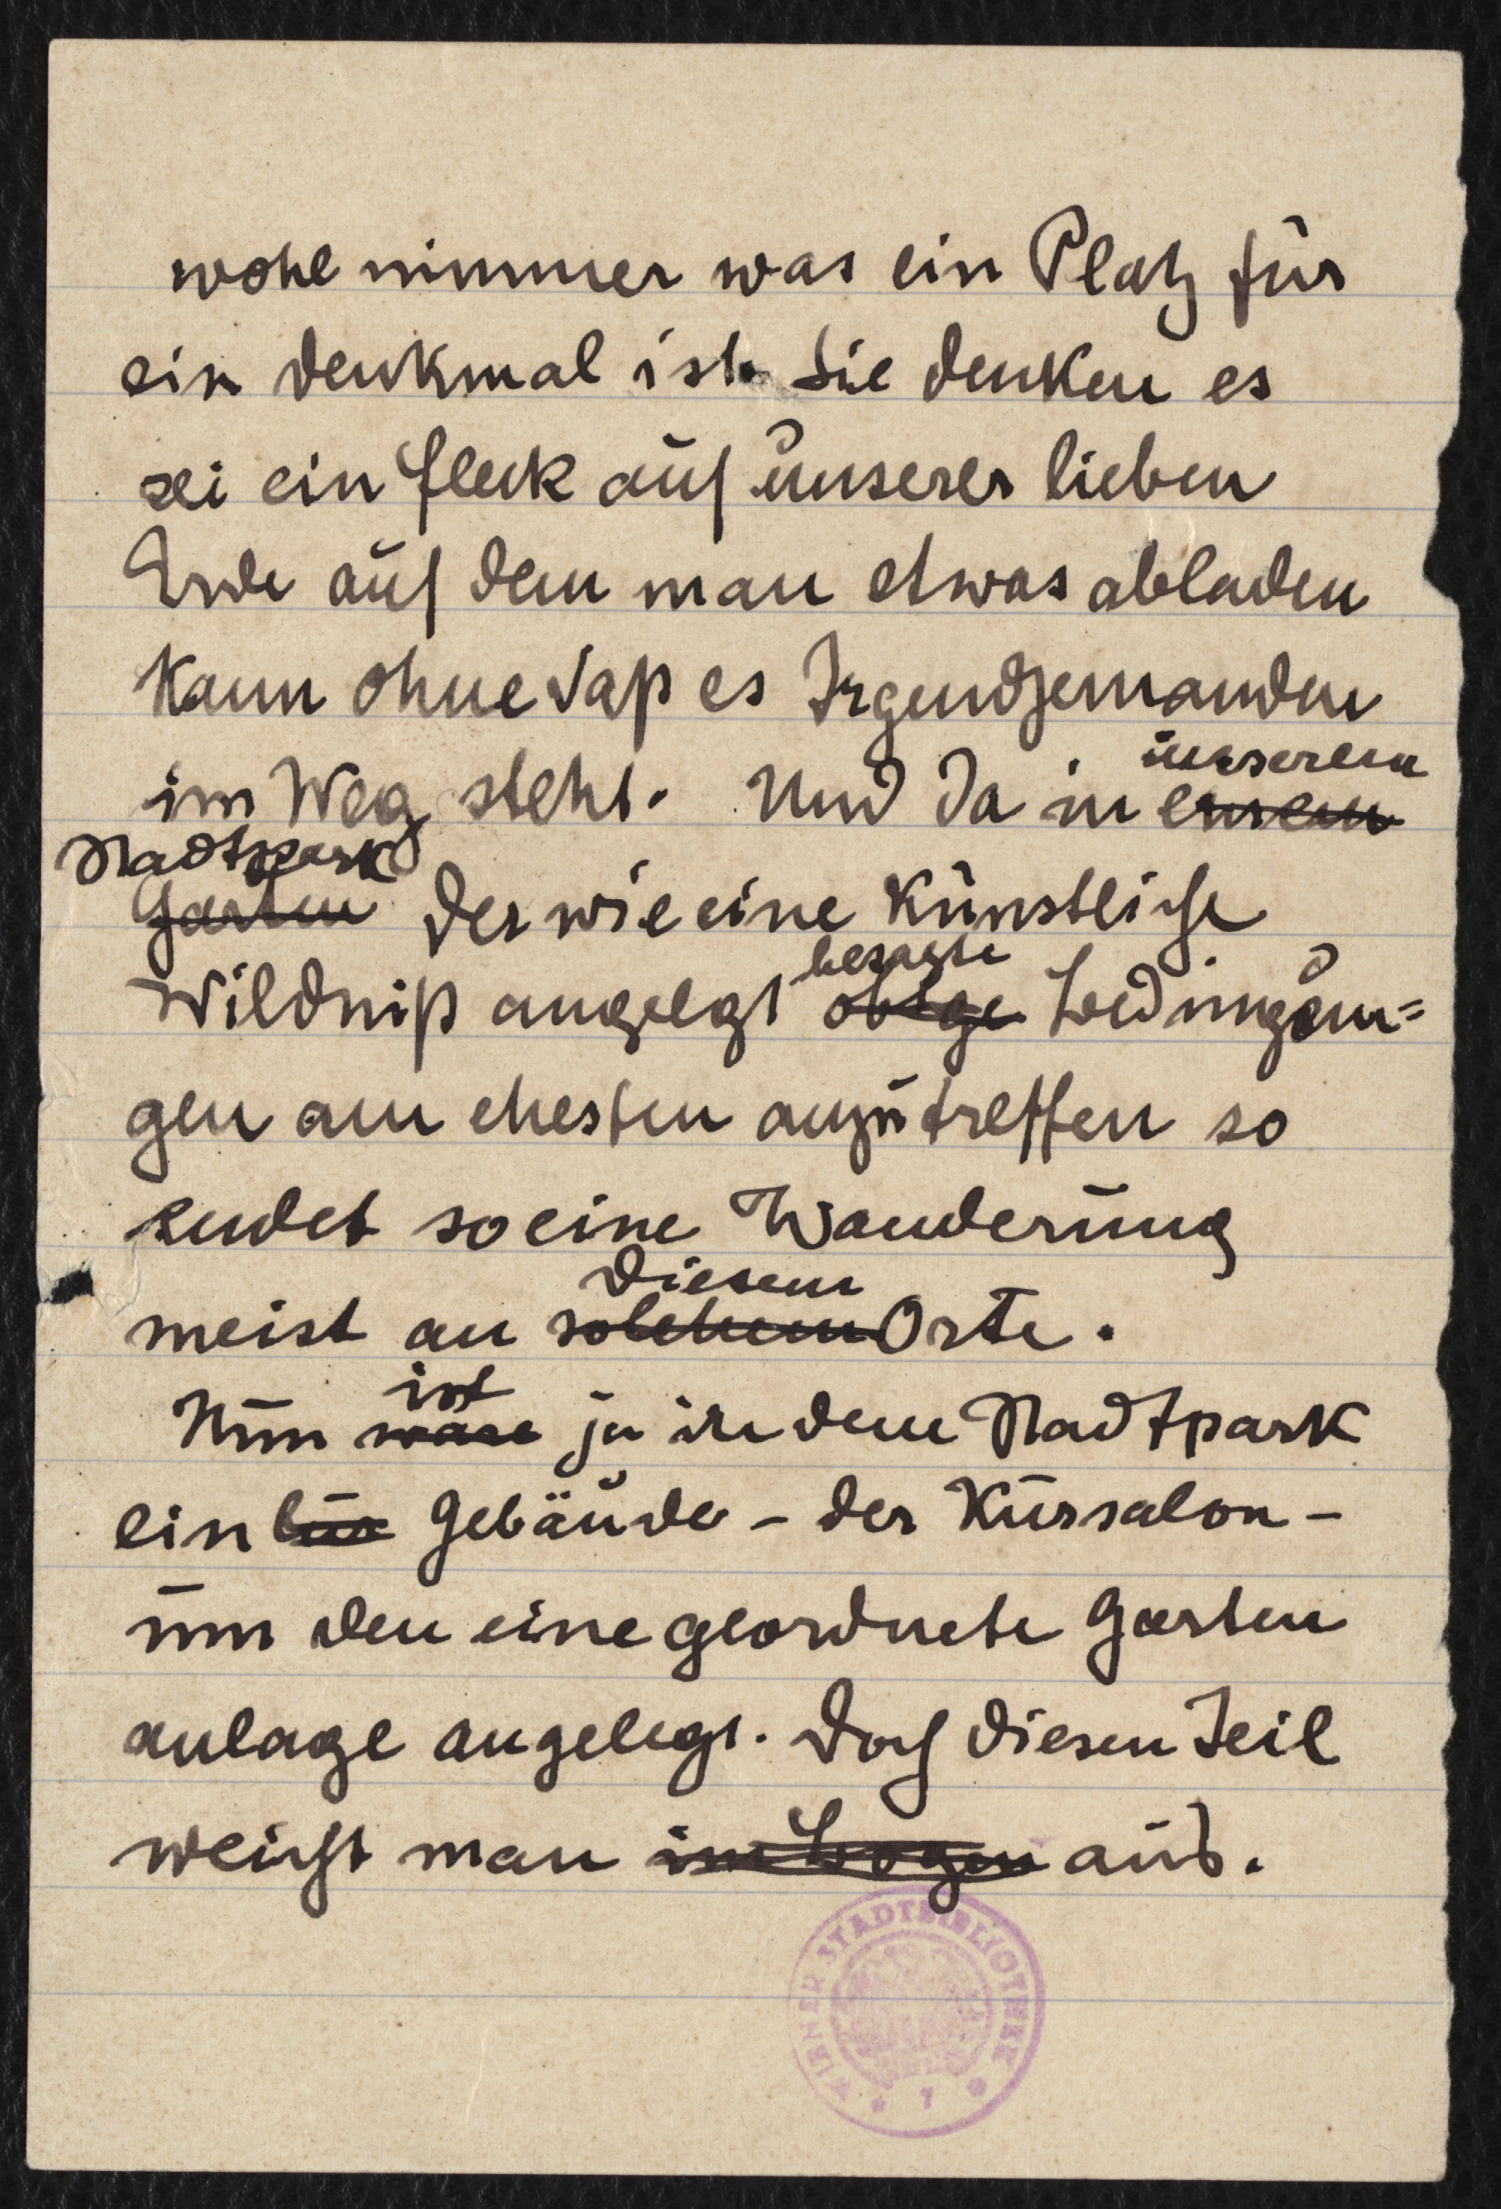 wohl nimmer was ein Platz für
ein Denkmal ist. Sie denken es
sei ein Fleck auf unserer lieben
Erde auf dem man etwas abladen
kann ohne daß es Irgendjemanden
im Weg steht. Und da in einem
unserem
Stadtpark
Garten der wie eine künstliche
besagte
Wildniß angelegt obige Bedingun=
gen am ehesten anzutreffen so
endet so eine Wanderung
diesem
meist an solchem Orte.
ist
Nun wäre ja in dem Stadtpark
ein Gebäude - der Kursalon -
um den eine geordnete Garten
anlage angelegt. Doch diesen Teil
weicht man im Bogen aus.
WIENER STADTBIBLIOTHEK